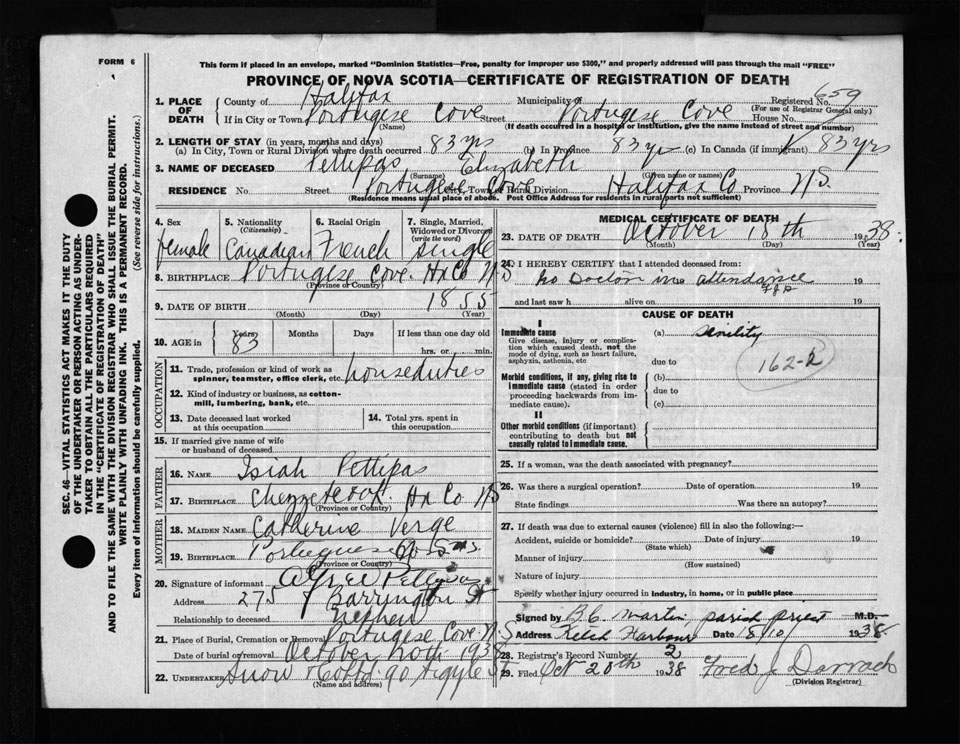 FORM 6
This form if placed in an envelope, marked "Dominion Statistics—Free, penalty for improper use $300," and properly addressed will pass through the mail "FREE"
PROVINCE OF NOVA SCOTIA—CERTIFICATE OF REGISTRATION OF DEATH
SEC. 46—VITAL STATISTICS ACT MAKES IT THE DUTY
OF THE UNDERTAKER OR PERSON ACTING AS UNDER-
TAKER TO OBTAIN ALL THE PARTICULARS REQUIRED
IN THE "CERTIFICATE OF REGISTRATION OF DEATH"
AND TO FILE THE SAME WITH THE DIVISION REGISTRAR WHO SHALL ISSUE THE BURIAL PERMIT.
WRITE PLAINLY WITH UNFADING INK. THIS IS A PERMANENT RECORD.
Every item of information should be carefully supplied. (See reverse side for instructions.)
1. PLACE OF DEATH
County of Halifax Municipality of Registered No. 659
(For use of Registrar General only)
If in City or Town Portugese Cove Street Portugese Cove House No.
(Name) (If death occurred in a hospital or institution, give the name instead of street and number)
2. LENGTH OF STAY (in years, months and days)
(a) In City, Town or Rural Division where death occurred 83 yrs (b) In Province 83 yr (c) In Canada (if immigrant) 83 yrs
3. NAME OF DECEASED Pettipas Elizabeth
(Surname) (Given name or names)
RESIDENCE No. Street Portugese Cove City, Town or Rural Division Halifax Co Province N.S.
(Residence means usual place of abode. Post Office Address for residents in rural parts not sufficient)
4. Sex female
5. Nationality (Citizenship) Canadian
6. Racial Origin French
7. Single, Married, Widowed or Divorced (write the word) Single
8. BIRTHPLACE Portugese Cove. Hx Co N-S
(Province or Country)
9. DATE OF BIRTH 1855
(Month) (Day) (Year)
10. AGE in Years 83 Months Days If less than one day old
hrs. or min.
OCCUPATION
11. Trade, profession or kind of work as spinner, teamster, office clerk, etc. houseduties
12. Kind of industry or business, as cotton-mill, lumbering, bank, etc.
13. Date deceased last worked at this occupation
14. Total yrs. spent in this occupation
15. If married give name of wife or husband of deceased
FATHER
16. NAME Isiah Pettipas
17. BIRTHPLACE Chezzetcook Hx Co N/S
(Province or Country)
MOTHER
18. MAIDEN NAME Catherine Verge
19. BIRTHPLACE Portuguese
(Province or Country)
20. Signature of informant Pettipas
Address 275 Barrington St
Relationship to deceased Nephew
21. Place of Burial, Cremation or Removal Portugese Cove. N.S
Date of burial or removal October 20th 1938
22. UNDERTAKER Snow Co Ltd 90 Argyle St
(Name and address)
MEDICAL CERTIFICATE OF DEATH
23. DATE OF DEATH October 18th 1938.
(Month) (Day) (Year)
24. I HEREBY CERTIFY that I attended deceased from:
no Doctor in attendance 19
and last saw h alive on 19
CAUSE OF DEATH
I
Immediate cause
Give disease, injury or complication which caused death, not the mode of dying, such as heart failure, asphyxia, asthenia, etc
(a) Senility
due to
162-b
Morbid conditions, if any, giving rise to immediate cause (stated in order proceeding backwards from immediate cause).
(b)
due to
(c)
II
Other morbid conditions (if important) contributing to death but not causally related to immediate cause.
25. If a woman, was the death associated with pregnancy?
26. Was there a surgical operation? Date of operation 19
State findings Was there an autopsy?
27. If death was due to external causes (violence) fill in also the following:—
Accident, suicide or homicide? Date of injury 19
(State which)
Manner of injury
(How sustained)
Nature of injury
Specify whether injury occurred in industry, in home, or in public place
Signed by B.C. Martin, parish priest M.D.
Address Ketch Harbour Date 18/10/ 1938
28. Registrar's Record Number 2
29. Filed Oct 20th 1938 Fred J Darrach
(Division Registrar)